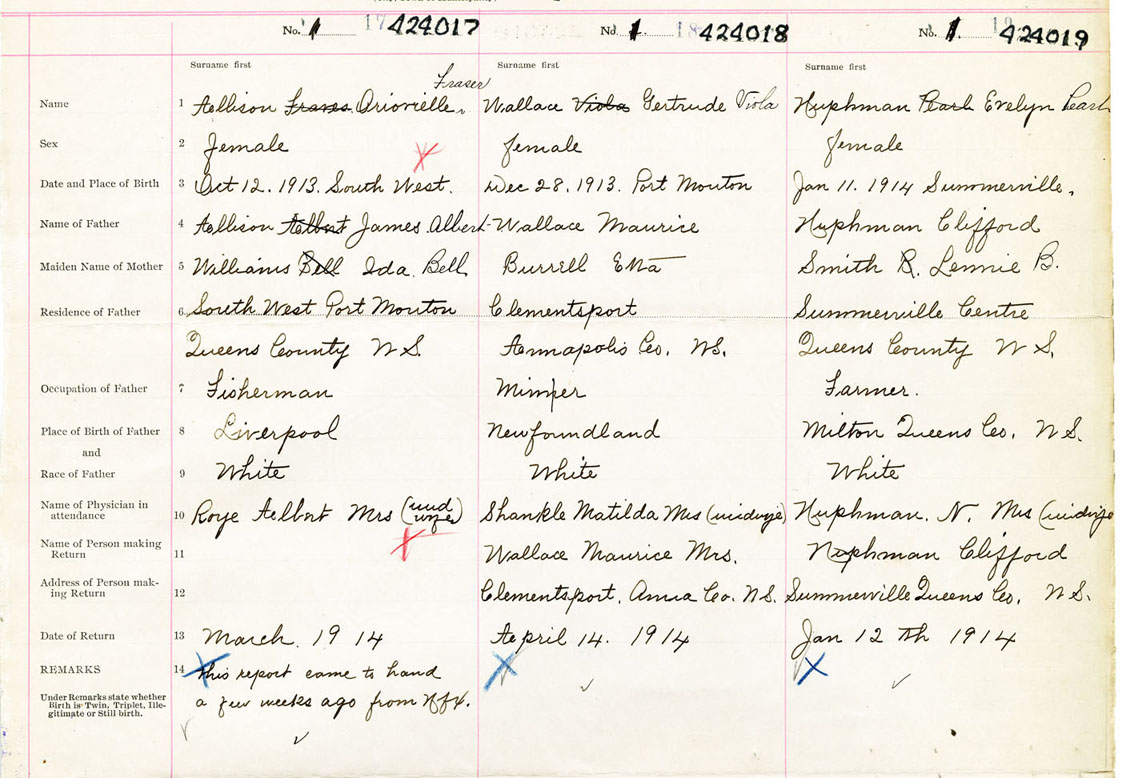 No. 1 17 424017 No. 1 18 424018 No. 1. 19 424019
Surname first Surname first Surname first
Fraser
Name 1 Allison Ariovielle Wallace Viola Gertrude Viola Huphman Pearl Evelyn Pearl
Sex 2 Female female female
Date and Place of Birth 3 Oct 12. 1913. South West. Dec 28, 1913. Port Mouton Jan 11. 1914 Summerville.
Name of Father 4 Allison Albert James Albert Wallace Maurice Huphman Clifford
Maiden Name of Mother 5 Williams Bell Ida Bell Burrell Etta Smith B. Lennie B.
Residence of Father 6 South West Port Mouton Clementsport Summerville Centre
Queens County N S. Annapolis Co. NS. Queens County N S.
Occupation of Father 7 Fisherman Miner Farmer.
Place of Birth of Father 8 Liverpool Newfoundland Milton Queens Co. N S.
and
Race of Father 9 White White White
Name of Physician in
attendance 10 Roye Albert Mrs (mid wife) Shankle Matilda Mrs (midwife) Huphman. N. Mrs (midwife
Name of Person making
Return 11 Wallace Maurice Mrs. Huphman Clifford
Address of Person mak-
ing Return 12 Clementsport, Anna Co. N.S. Summerville Queens Co. N S.
Date of Return 13 March. 1914 April 14. 1914 Jan 12 th 1914
REMARKS 14 this report came to hand
Under Remarks state whether
Birth is Twin, Triplet, Ille-
gitimate or Still birth.
a few weeks ago from Hfx.